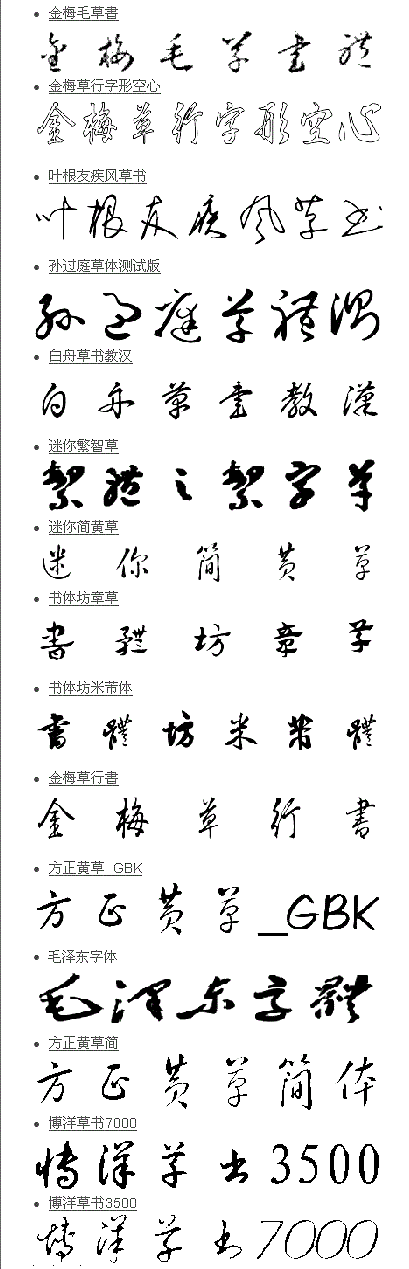 金梅毛草書
金梅毛草書體
金梅草行字形空心
金梅草行字形空心
叶根友疾风草书
叶根友疾风草书
孙过庭草体测试版
孙过庭草體測
白舟草书教汉
白舟草書教漢
迷你繁智草
繁體之繁字草
迷你简黄草
迷你简黄草
书体坊章草
書體坊章草
书体坊米芾体
書體坊米芾體
金梅草行書
金梅草行書
方正黄草_GBK
方正黄草_GBK
毛泽东字体
毛澤东字體
方正黄草简
方正黄草简体
博洋草书7000
博洋草书3500
博洋草书3500
博洋草书7000